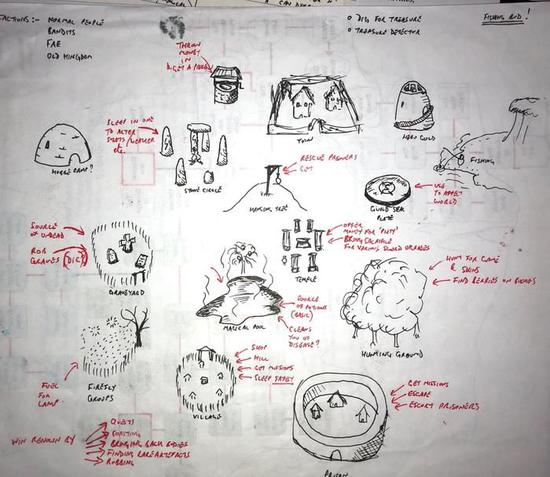 FACTIONS :- NORMAL PEOPLE
BANDITS
FAE
OLD KINGDOM
o DIG FOR TREASURE
o TREASURE DETECTOR
FISHING ROD!
THROW
MONEY
IN
& GET A
TOWN
HERO GUILD
FISHING
SLEEP IN ONE
TO ALTER
STATS/
etc.
STONE CIRCLE
CAMP?
RESCUE
TREE
GUILD SEAL
PLATE
USE
TO AFFECT
WORLD
SOURCE
OF UNDEAD
ROB
GRAVES (DIG)
GRAVEYARD
OFFER
MONEY FOR
BRING
FOR VARIOUS
TEMPLE
SOURCE
OF POTIONS
(BASIC)
CLEANS
YOU OF
DISEASE?
MAGICAL POOL
HUNT FOR GAME
& SKINS
FIND BERRIES ON
HUNTING GROUND
FUEL
FOR
LAMP
FIREFLY
GROUPS
SHOP
GET MISSIONS
SLEEP SAFELY
VILLAGE
GET MISSIONS
ESCAPE
ESCORT PRISONERS
PRISON
WIN RENOWN BY
QUESTS
BRINGING BACK BODIES
FINDING RARE ARTEFACTS
ROBBING